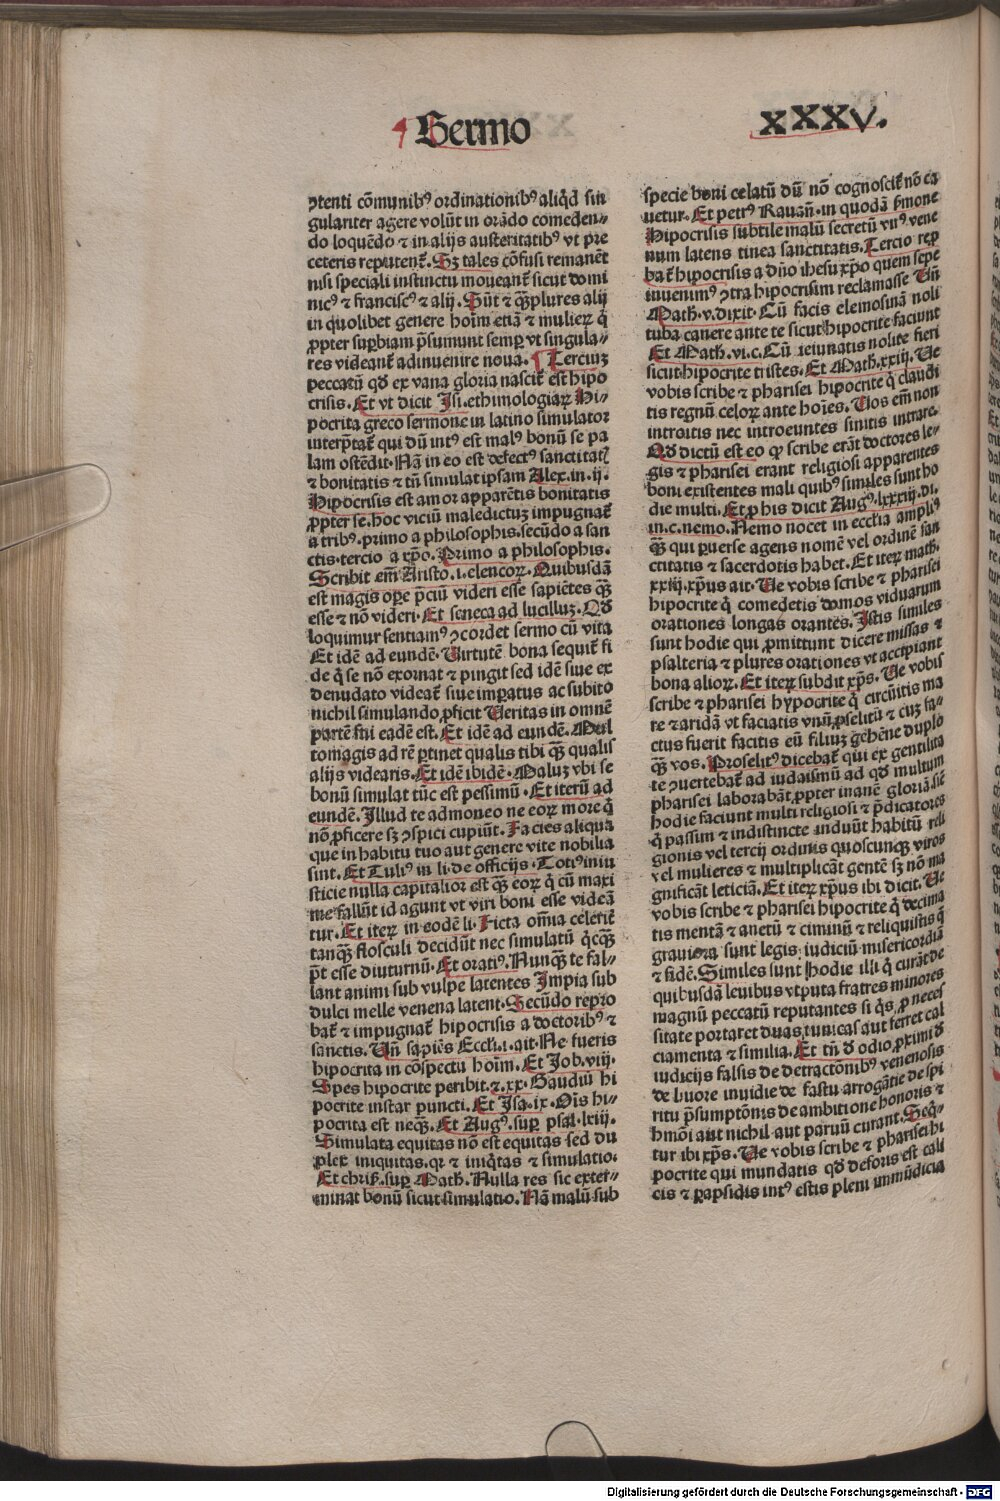 Sermo
XXXV.
ꝯtenti cōmunibꝰ ordinationibꝰ aliq̇d sin
gulariter agere volūt in orādo comeden⸗
do loquēdo ⁊ in alijs austeritatibꝰ vt pre
ceteris reputent᷑. Sꝫ tales cōfusi remanēt
nisi speciali instinctu moueant᷑ sicut domi
nicꝰ ⁊ franciscꝰ ⁊ alij. Sūt ⁊ q̄ꝫplures alij
in quolibet genere hoīm etiā ⁊ mulieꝝ q̇
ꝓpter suꝑbiam p̄sumunt semꝑ vt singula⸗
res videant᷑ adinuenire noua. ¶ Terciuꝫ
peccatū qd̓ ex vana gloria nascit᷑ est hipo
crisis. Et vt dicit Isi. ethimologiaꝝ Hi⸗
pocrita greco sermone in latino simulator
interp̄tat᷑ qui dū intꝰ est malꝰ bonū se pa
lam ostēdit. Nā in eo est defectꝰ sanctitatꝭ
⁊ bonitatis ⁊ tn̄ simulat ipsam Alex. in .ij.
Hipocrisis est amor apparētis bonitatis
ꝓpter se. hoc viciū maledictuꝫ impugnat᷑
a tribꝰ. primo a philosophis. secūdo a san
ctis. tercio a xp̄o. Primo a philosophis.
Scribit em̄ Aristo. i. elencoꝝ. Quibusdā
est magis oꝑe p̄ciū videri esse sapiētes q̄ꝫ
esse ⁊ nō videri. Et seneca ad lucilluꝫ. Qd̓
loquimur sentiamꝰ ꝯcordet sermo cū vita
Et idē ad eundē. Virtutē bona sequit᷑ fi
de q̇ se nō exornat ⁊ pingit sed idē siue ex
denudato videat᷑ siue imꝑatus ac subito
nichil simulando ꝓficit Veritas in omnē
partē sui eadē est. Et idē ad eundē. Mul
tomagis ad rē ꝑtinet qualis tibi q̄ꝫ qualis
alijs videaris. Et idē ibidē. Maluꝫ vbi se
bonū simulat tūc est pessimū. Et iterū ad
eundē. Illud te admoneo ne eoꝝ more q̇
nō ꝓficere sꝫ ꝯspici cupiūt. Facies aliqua
que in habitu tuo aut genere vite nobilia
sint. Et Tuliꝰ in li. de officijs. Totiꝰ iniu
sticie nulla capitalior est q̄ꝫ eoꝝ q̇ cū maxi
me fallūt id agunt vt viri boni esse videā
tur. Et iteꝝ in eodē li. Ficta om̄ia celerit᷑
tanq̄ꝫ flosculi decidūt nec simulatū q̇cq̄ꝫ
p̄t esse diuturnū. Et oratiꝰ. Nunq̄ꝫ te fal⸗
lant animi sub vulpe latentes Impia sub
dulci melle venena latent. Secūdo repro
bat᷑ ⁊ impugnat᷑ hipocrisis a doctoribꝰ ⁊
sanctis. Vn̄ sapiēs Eccli. i. ait. Ne fueris
hipocrita in cōspectu hoīm. Et Job. viij.
Spes hipocrite peribit. ⁊ .xx. Gaudiū hi
pocrite instar puncti. Et Isa. ix. Oīs hi⸗
pocrita est neq̄ꝫ. Et Augꝰ. suꝑ psal. lxiij.
Simulata equitas nō est equitas sed du
plex iniquitas. qr ⁊ iniq̇tas ⁊ simulatio.
Et chriẜ. suꝑ Math. Nulla res sic exter⸗
minat bonū sicut simulatio. Nā malū sub
specie boni celatū dū nō cognoscit᷑ nō ca
uetur. Et petrꝰ Rauan̄. in quodā ẜmone
Hipocrisis subtile malū secretū virꝰ vene
num latens tinea sanctitatis. Tercio repꝛo
bat᷑ hipocrisis a dn̄o ihesu xp̄o quem sepe
inuenimꝰ ꝯtra hipocrisim reclamasse Vn̄
Math. v. dixit. Cū facis eleimosinā noli
tuba canere ante te sicut hipocrite faciunt
Et Math. vi. c. Cū ieiunatis nolite fieri
sicut hipocrite tristes. Et Math. xxiij. Ve
vobis scribe ⁊ pharisei hipocrite q̇ claudi
tis regnū celoꝝ ante hoīes. Vos em̄ non
introitis nec introeuntes sinitis intrare.
Qd̓ dictū est eo ꝙ scribe erāt doctores le⸗
gis ⁊ pharisei erant religiosi apparentes
boni existentes mali quibꝰ similes sunt ho
die multi. Et ꝓ his dicit Augꝰ. lxxxiij. di.
in. c. nemo. Nemo nocet in ecclīa ampliꝰ
q̄ꝫ qui ꝑuerse agens nomē vel ordinē san
ctitatis ⁊ sacerdotis habet. Et iteꝝ math.
xxiij. xp̄us ait. Ve vobis scribe ⁊ pharisei
hipocrite q̇ comedetis domos viduarum
orationes longas orantes. Istis similes
sunt hodie qui ꝓmittunt dicere missas ⁊
psalteria ⁊ plures orationes vt accipiant
bona alioꝝ. Et iteꝝ subdit xp̄s. Ve vobis
scribe ⁊ pharisei hypocrite q̇ circūitis ma
re ⁊ aridā vt faciatis vnū ꝓselitū ⁊ cuꝫ fa⸗
ctus fuerit facitis eū filiuꝫ gehēne duplo
q̄ꝫ vos. Proselitꝰ dicebat᷑ qui ex gentilita
te ꝯuertebat᷑ ad iudaismū ad qd̓ multum
pharisei laborabāt ꝓpter inanē gloriā. sic̄
hodie faciunt multi religiosi ⁊ p̄dicatores
q̇ passim ⁊ indistincte induūt habitū reli
gionis vel tercij ordinis quoscunq̄ꝫ viros
vel mulieres ⁊ multiplicāt gentē sꝫ nō ma
gnificāt leticiā. Et iteꝝ xp̄us ibi dicit. Ve
vobis scribe ⁊ pharisei hipocrite q̇ decima
tis mentā ⁊ anetū ⁊ ciminū ⁊ reliquistis q̇
grauiora sunt legis iudiciū misericordiā
⁊ fidē. Similes sunt hodie illi q̇ curāt de
quibusdā leuibus vtputa fratres minores
magnū peccatū reputantes si q̇s ꝓ neces
sitate portaret duas tunicas aut ferret cal
ciamenta ⁊ similia. Et tn̄ d̓ odio ꝓximi d̓
iudicijs falsis de detractōnibꝰ venenosis
de liuore inuidie de fastu arrogātie de spi
ritu p̄sumptōnis de ambitione honoris ⁊
hmōi aut nichil aut paruū curant. Seq̇⸗
tur ibi xp̄s. Ve vobis scribe ⁊ pharisei hi
pocrite qui mundatis qd̓ deforis est cali
cis ⁊ ꝑapsidis intꝰ estis pleni immūdicia
Digitalisierung gefördert durch die Deutsche Forschungsgemeinschaft - DFG